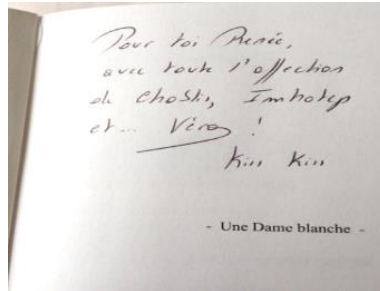 Pour toi Renée,
avec toute l'affection
de Chostis, Imhotep
et... Véro !
Kiss Kiss
- Une Dame blanche -